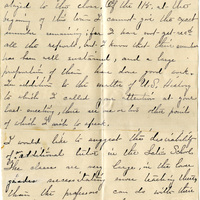 abject to this close. Of the 18. at the
beginning of this term I cannot give the exact
number remaining, for I have not yet rec'd
all the reports, but I know that their number
has been well sustained, and a large
proportion of them have done good work.
In addition to the matter of U.S. History
to which I called your attention at your
last meeting, there are one or two other points
of which I wish to speak.
I would like to suggest the desirability
of additional tutors in the Latin School
The classes are very large, in the lower
grades necessitating more teaching than
than the professors can do with their